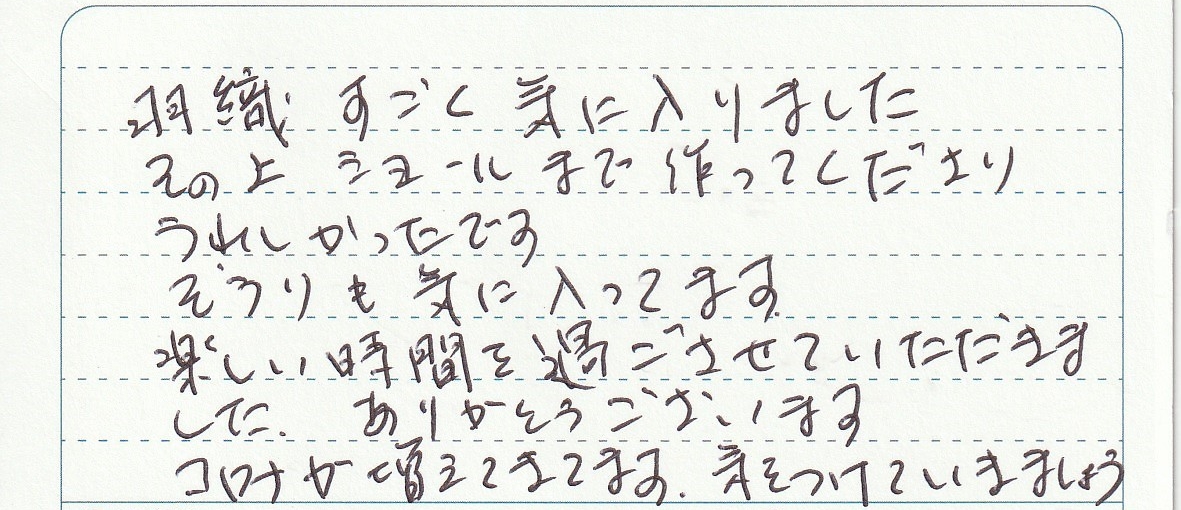 羽織 すごく 気に入りました
その上 ショールまで 作ってくださり
うれしかったです
ぞうりも 気に入ってます
楽しい時間を 過ごさせていただきま
した. ありがとうございます
コロナが増えてきてます. 気をつけていきましょう